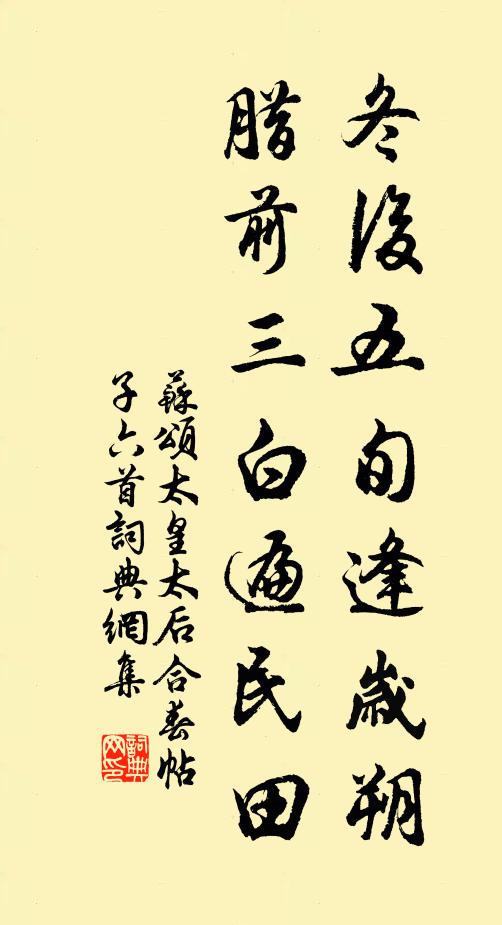 冬後五旬逢歲朔
腊前三白遍民田
蘇頌太皇太后合春帖
子六首詞典網集
詞典
网印